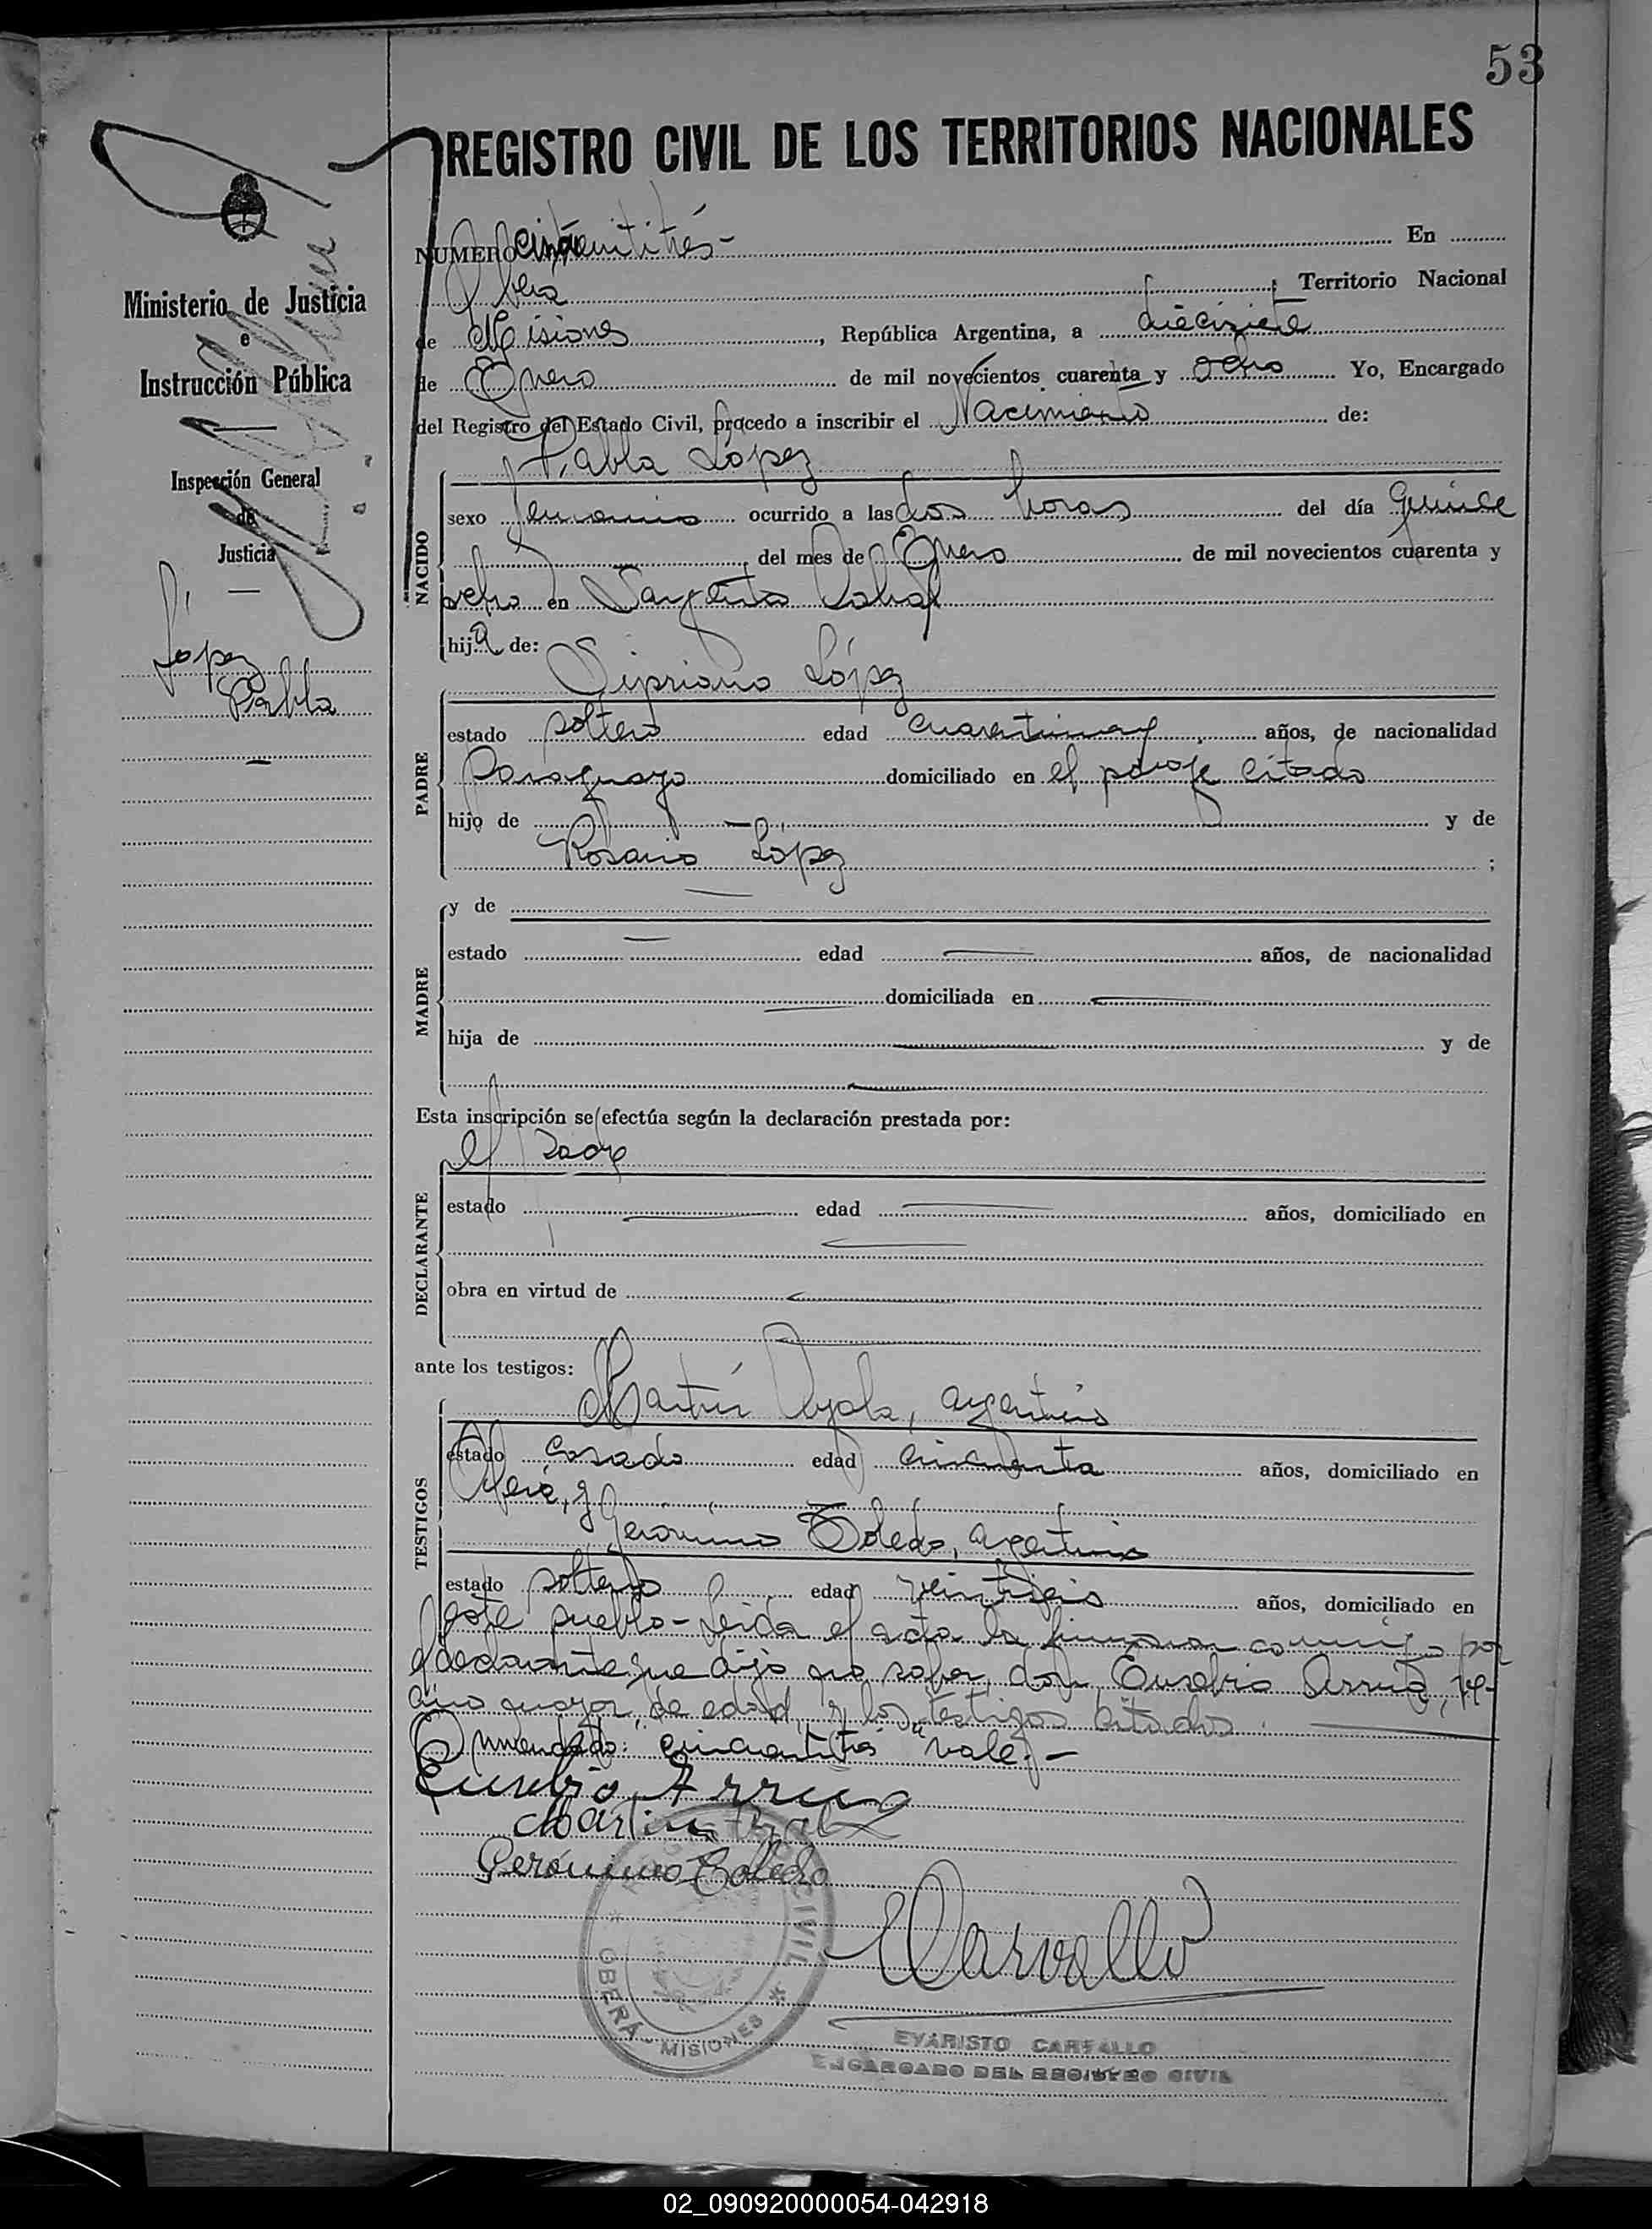 53
REGISTRO CIVIL DE LOS TERRITORIOS NACIONALES
Ministerio de Justicia
e
Instrucción Pública
Inspección General
de
Justicia
López
Pabla
NUMERO cincuentitrés - En
Oberá ; Territorio Nacional
de Misiones , República Argentina, a diecisiete
de Enero de mil novecientos cuarenta y ocho Yo, Encargado
del Registro del Estado Civil, procedo a inscribir el Nacimiento de:
Pabla López
NACIDO
sexo femenino ocurrido a las dos horas del día quince
del mes de Enero de mil novecientos cuarenta y
ocho en Sargento Cabral
hija de:
Cipriano López
PADRE
estado soltero edad años, de nacionalidad
Paraguayo domiciliado en el paraje citado
hijo de — y de
Rosario López ;
MADRE
y de —
estado — edad — años, de nacionalidad
— domiciliada en —
hija de — y de
—
Esta inscripción se efectúa según la declaración prestada por:
el Padre
DECLARANTE
estado — edad — años, domiciliado en
—
obra en virtud de —
—
ante los testigos:
Martín Ayala, argentino
TESTIGOS
estado casado edad cincuenta años, domiciliado en
Oberá, y
Gerónimo Toledo, argentino
estado soltero edad años, domiciliado en
este pueblo - Leída el acta la firmaron conmigo por
el declarante que dijo no saber, don Eusebio Arrua, ve-
cino mayor de edad, y los testigos citados. —
Enmendado: "cincuentitrés" vale. -
Eusebio Arrua
Martin Ayala
Gerónimo Toledo
CIVIL
OBERÁ - MISIONES *
ECarvallo
EVARISTO CARVALLO
ENCARGADO DEL REGISTRO CIVIL
02_090920000054-042918